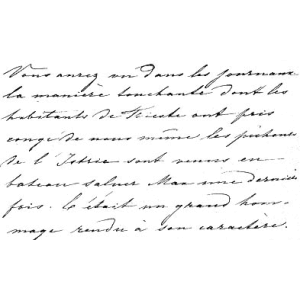 Vous aurez vu dans les journaux
la manière touchante dont les
habitants de Trieste ont pris
congé de nous même les pêcheurs
de l'Istrie sont venus en
bateau saluer Max une dernière
fois. C'était un grand hom-
mage rendu à son caractère.